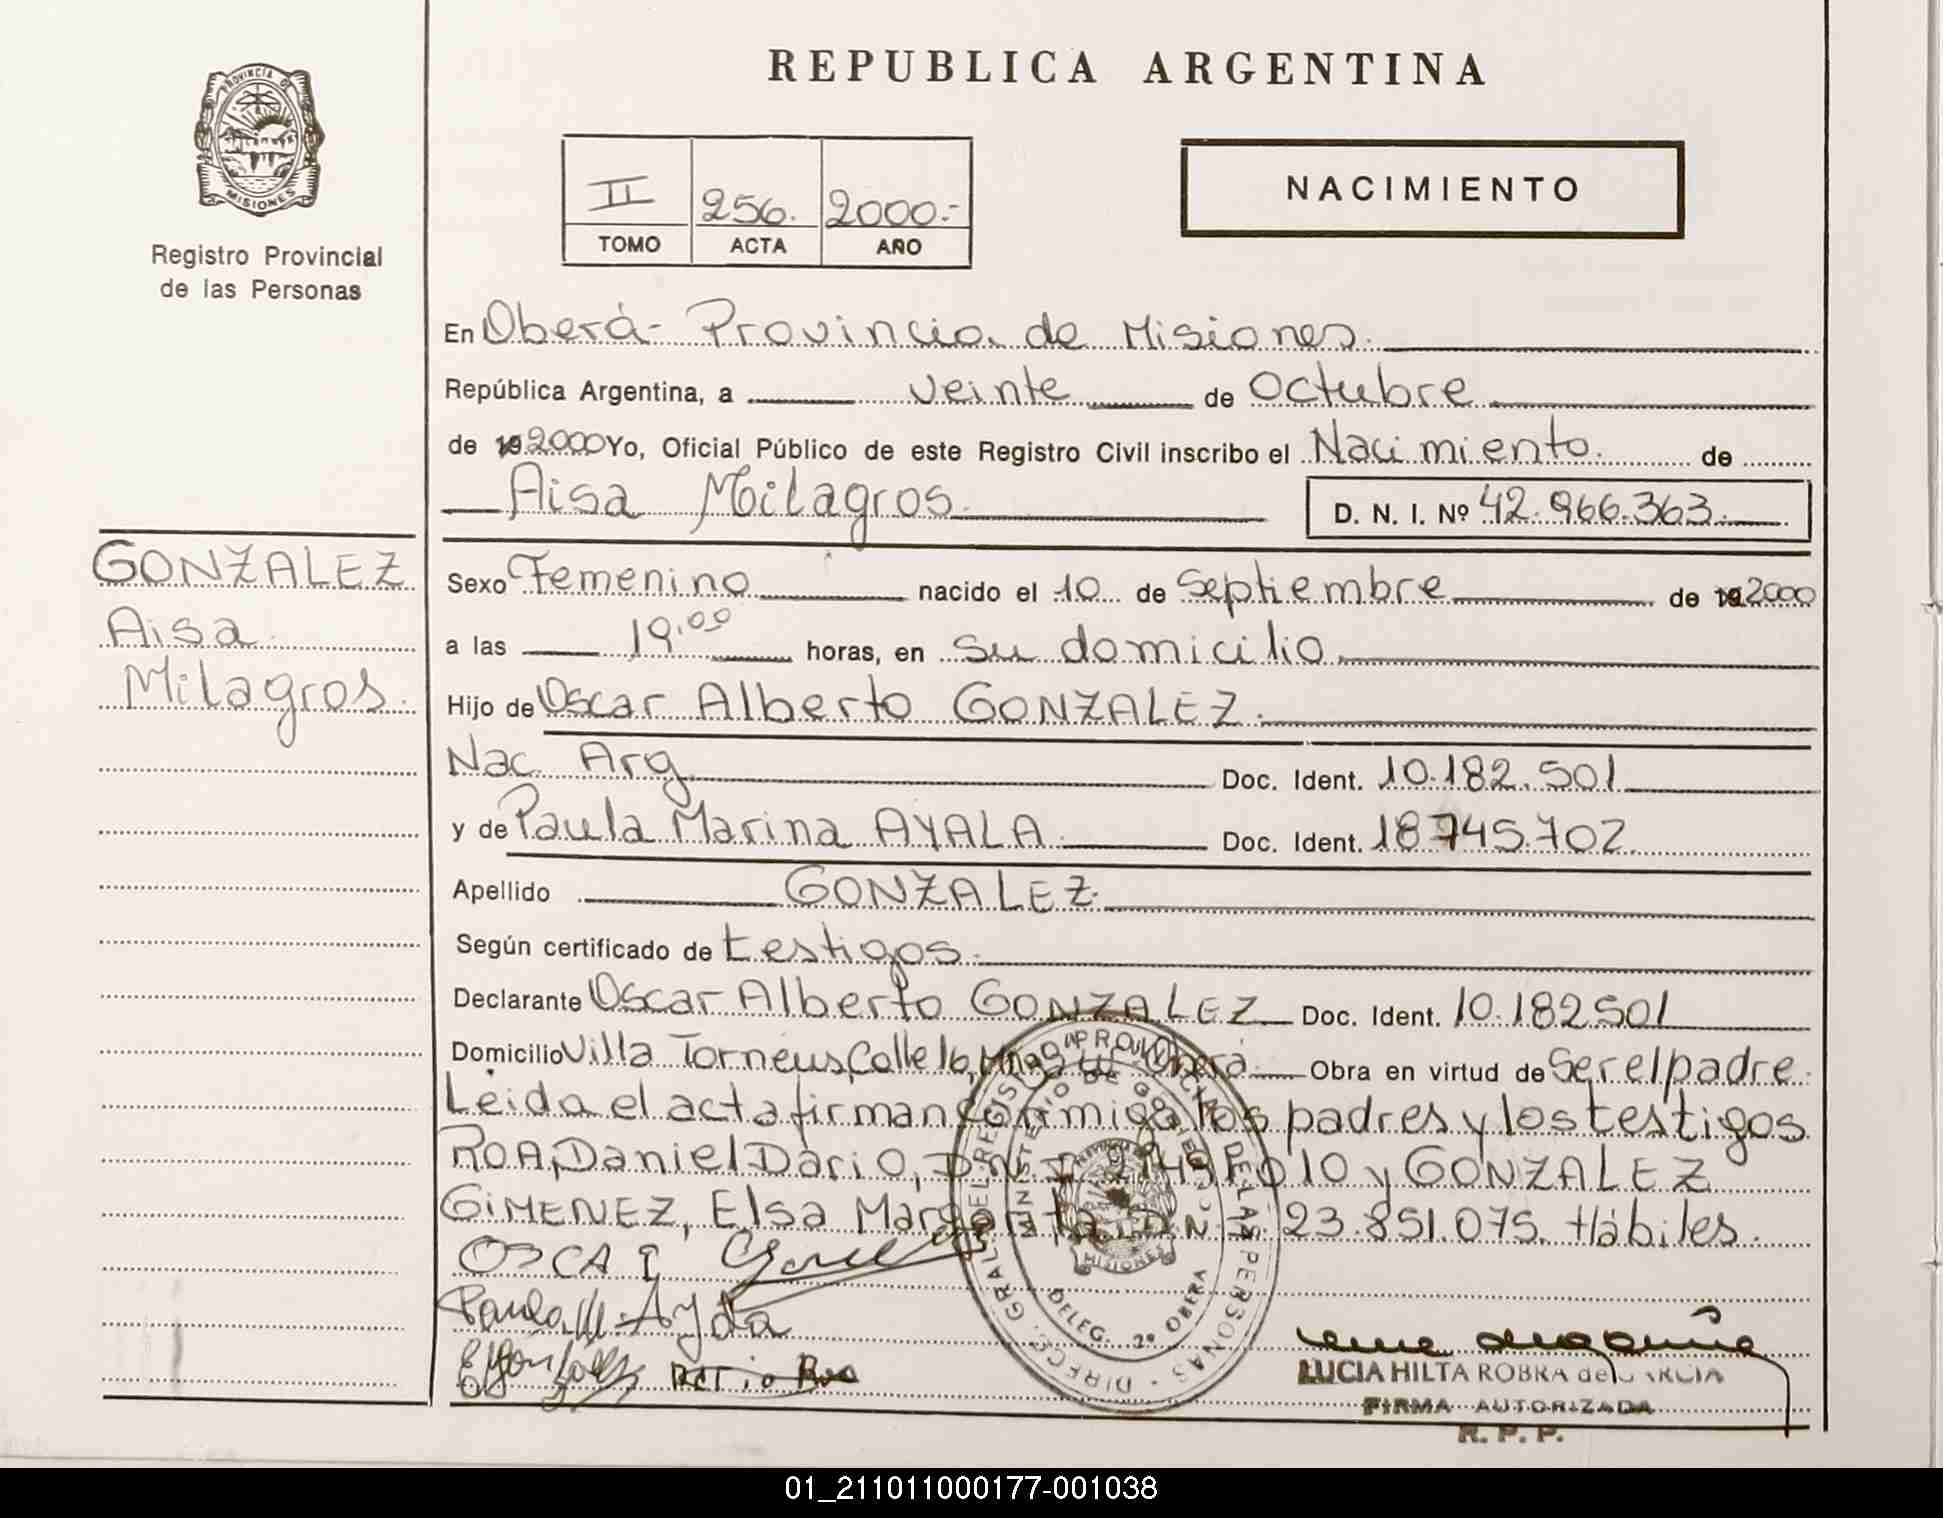 REPUBLICA ARGENTINA
PROVINCIA DE
MISIONES
Registro Provincial
de las Personas
II 256. 2000.-
TOMO ACTA AÑO
NACIMIENTO
En Oberá - Provincia de Misiones.
República Argentina, a veinte de Octubre
de 19 2000 Yo, Oficial Público de este Registro Civil inscribo el Nacimiento. de
Aisa Milagros.
D. N. I. Nº 42.966.363.
GONZALEZ
Aisa
Milagros.
Sexo Femenino nacido el 10 de Septiembre de 19 2000
a las 19.00 horas, en su domicilio
Hijo de Oscar Alberto GONZALEZ.
Nac. Arg. Doc. Ident. 10.182.501
y de Paula Marina AYALA. Doc. Ident. 18745.702.
Apellido GONZALEZ.
Según certificado de testigos.
Declarante Oscar Alberto GONZALEZ Doc. Ident. 10.182501
Domicilio Villa Torneus, Calle 16, Oberá Obra en virtud de Ser el padre.
Leida el acta firman conmigo los padres y los testigos
ROA, Daniel Dario, y GONZALEZ
GIMENEZ, Elsa Margarita D.N.I. 23.851.075. Hábiles.
OSCAR
Paula M. Ayala
Dario Roa
DIRECC. GRAL. DEL REGISTRO PROVINCIAL DE LAS PERSONAS
MINISTERIO DE GOBIERNO
MISIONES
DELEG. 2º OBERA
LUCIA HILTA ROBRA de GARCIA
FIRMA AUTORIZADA
R. P. P.
01_211011000177-001038